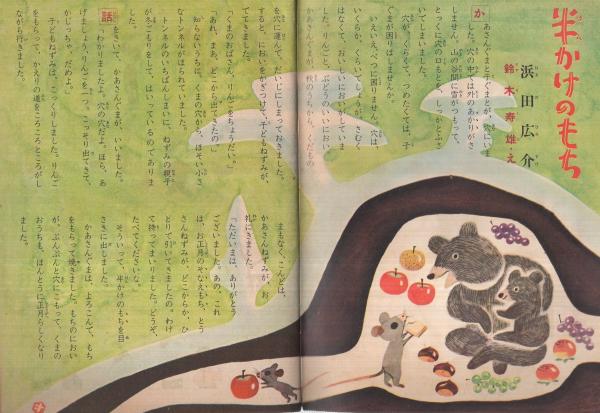 半かけのもち
浜田広介
鈴木寿雄・え
かあさんぐまと子ぐまとが、穴にいま
した。穴の中では外のあかりがさ
しません。山の谷間に雪がつもって、
とっくに穴の口もとを、しっかとふさ
いでしまいました。
穴が、くらがって、つめたくては、子
ぐまが困りはしませんか。
いえいえ、べつに困りません。穴は、
くらいから、くらいでしょうが、さむく
はなくて、おいしいにおいがしていま
した。りんごと、ぶどうのいいにおい。
かあさんぐまが、秋のうちから、くだもの
を穴に運んで、だいじにしまっておきました。
すると、においをかぎつけて、子どもねずみが、
でてきました。
「くまのおばさん、りんごをちょうだい。」
「あれ、まあ、どこから出てきたの。」
知らないうちに、くまの穴から、ほそい小さ
なトンネルがほられていました。
トンネルのいちばんしまいに、ねずみの親子
が、冬ごもりをして、はいっているのでありま
した。
話
をきいて、かあさんぐまが、いいました。
「わかりましたよ。穴の穴だよ。ほら、あ
げましょう。りんごを一つ。こっそり出てきて、
かじっちゃ、だめよ。」
子どもねずみは、こっくりしました。りんご
をもらって、かえりの道をころころところがし
ながら行きました。
まもなく、こんどは、
かあさんねずみが、お
礼にきました。
「ただいまは、ありがとう
ございました。あの、これ
は、お正月のそなえもち、とう
さんねずみが、どこからか、ひ
とりで引いてきましたの。わけ
て持ってまいりました。どうぞ、
たべてくださいな。」
そういって、半かけのもちを目
さきに出しました。
かあさんぐまは、よろこんで、もち
をもらって焼きました。もちのにおい
が、ぷんぷんと穴にこもって、くまの
おうちも、ほんとうに正月らしくなり
ました。